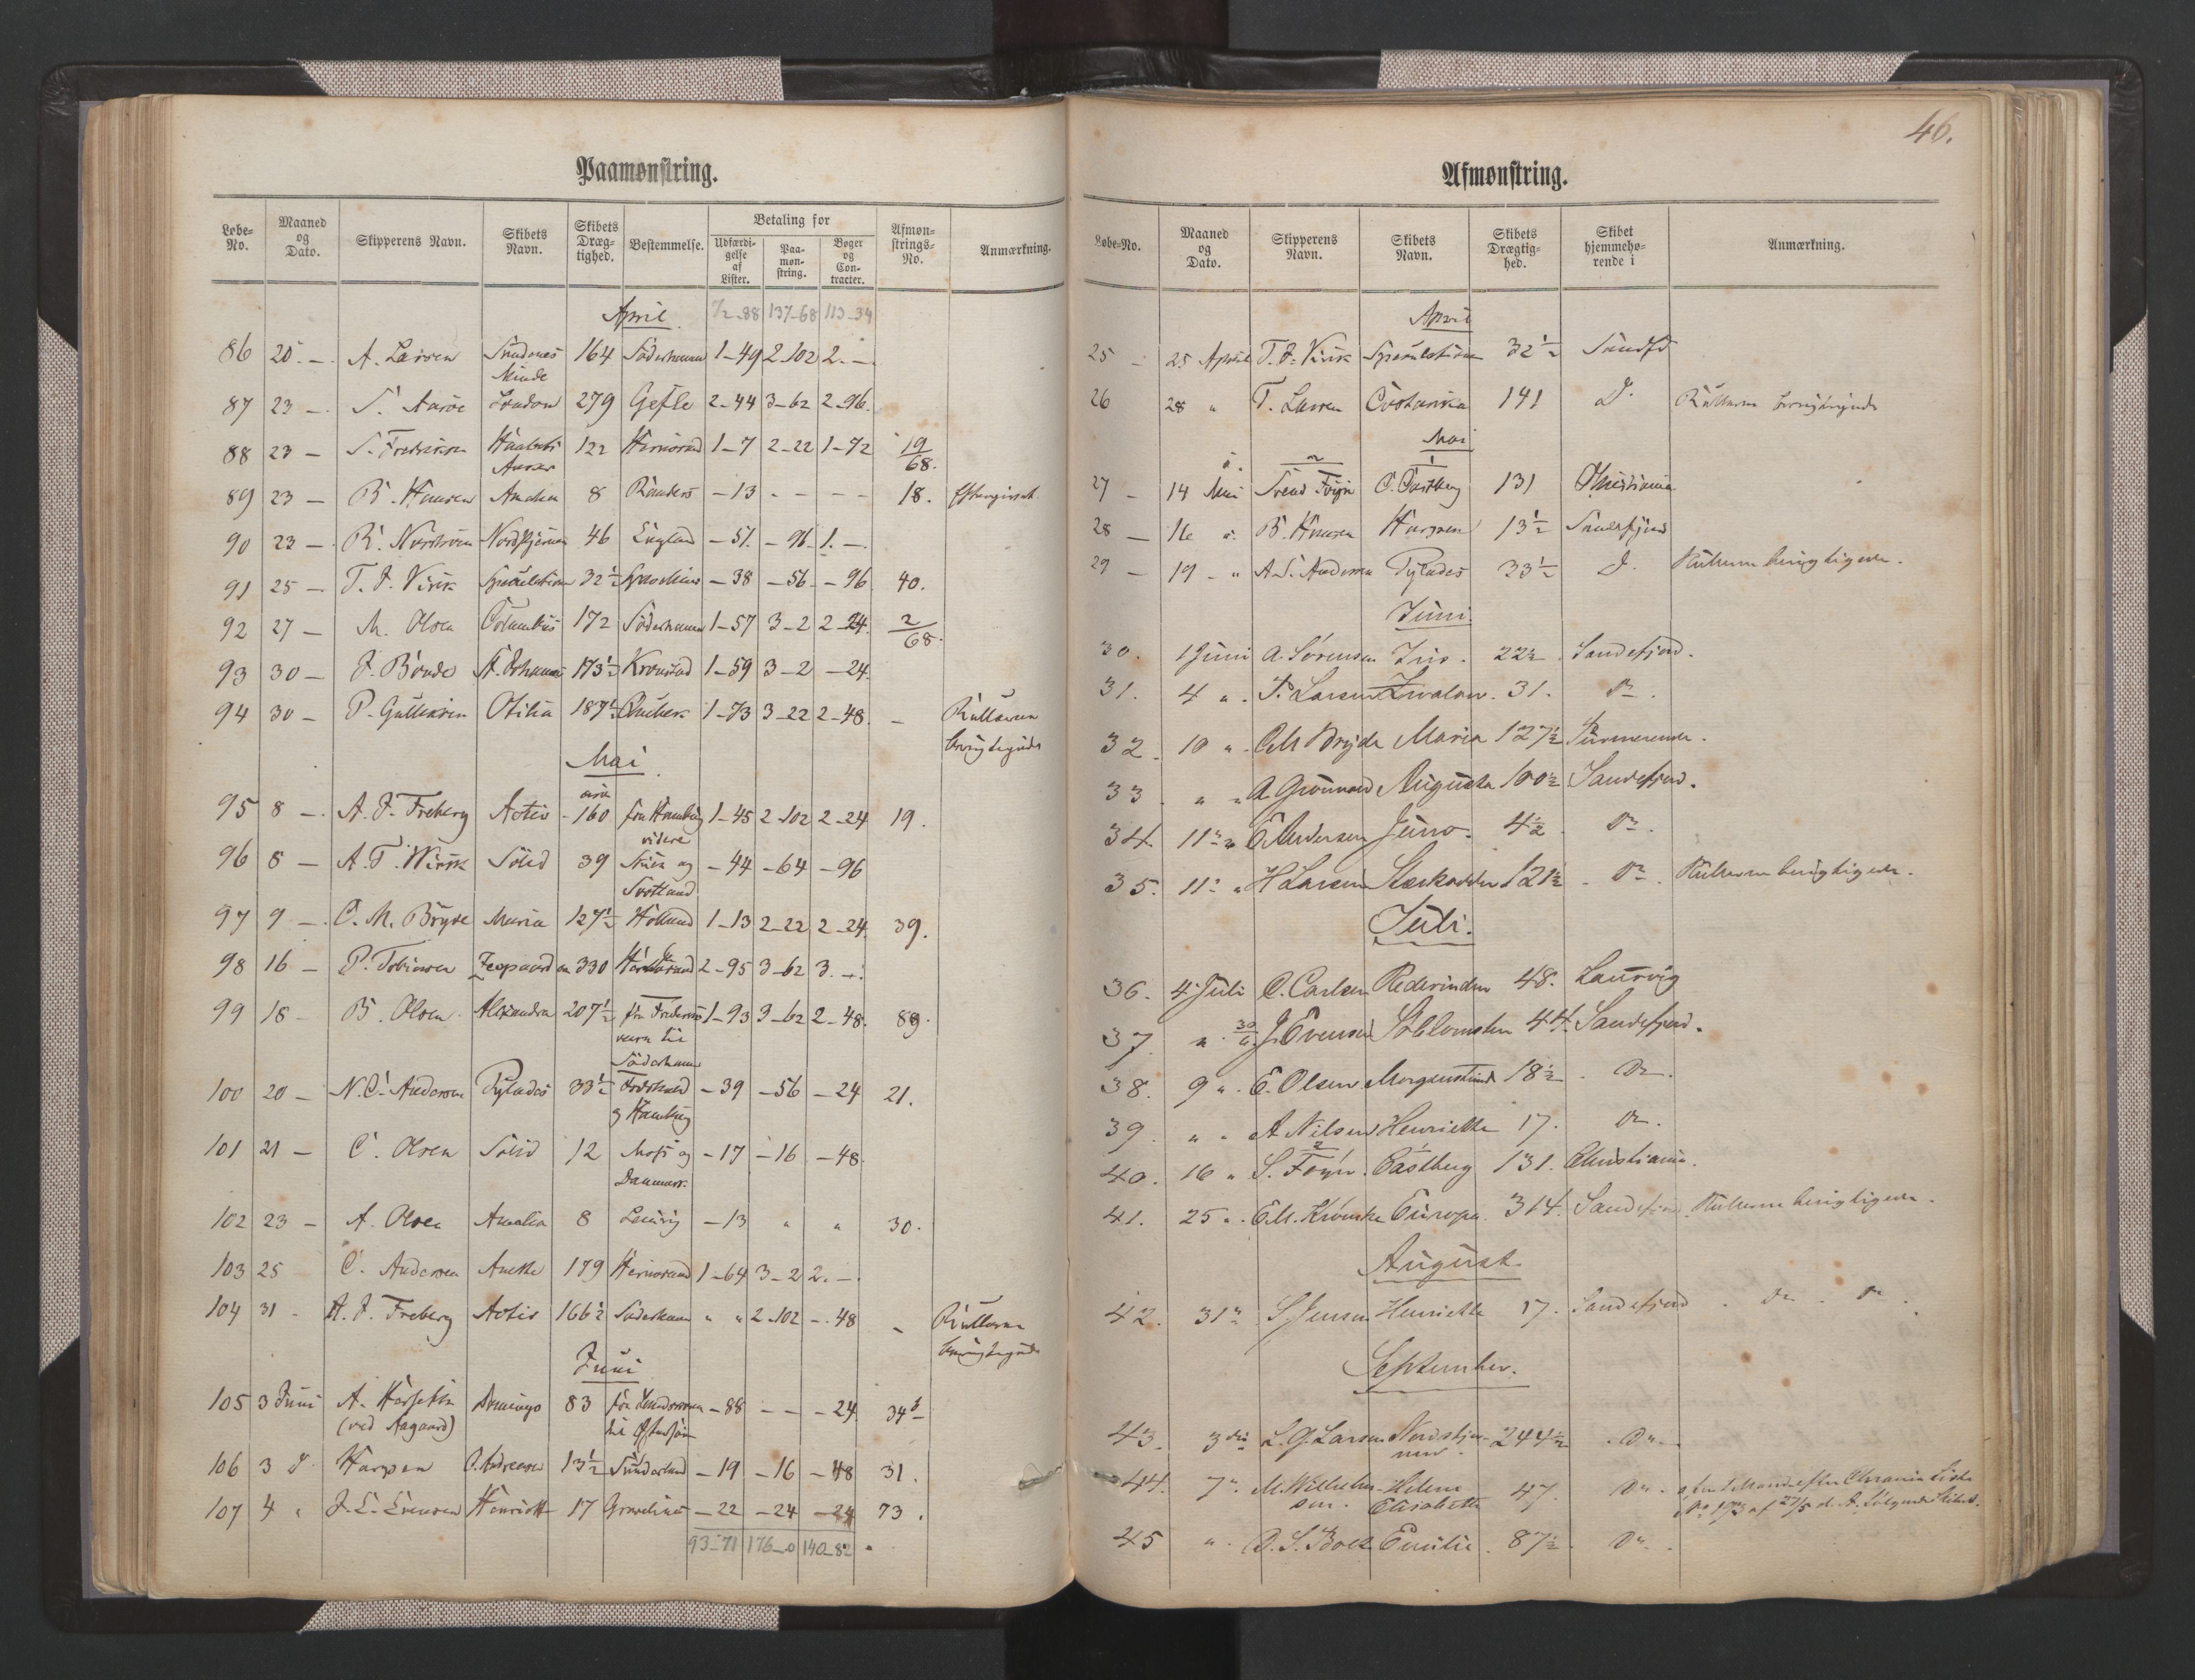 Paamønstring.
Løbe-No. Maaned og Dato. Skipperens Navn. Skibets Navn. Skibets Dræg-tighed. Bestemmelse. Betaling for Afmøn-strings-No. Anmærkning.
Udfærdi-gelse af Lister. Paa-møn-string. Bøger og Con-tracter.
April 137-68 113-34
86 20 - A. Larsen 164 Söderhamn 1-49 2-102 2.-
Minde
87 23 - S. Aarøe London 279 Gefle 2-44 3-62 2-96.
88 23 - S. Fredriksen Haabets 122 Hernösand 1-7 2-22 1-72 19/68.
Anker
89 23 - B. Hansen Amalia 8 Randers -13 - - - 18.
90 23 - 46 England -51. -96. 1.-
91 25 - T. J. Virik Speculation 32½ -38 -56 -96 40.
92 27 - M. Olsen Columbus 172 Söderhamn 1-57 3-2 2-24. 2/68.
93 30 - J. Bonde 173½ Kronstad 1-59 3-2 -24.
94 30 - P. Gulliksen Otilia 187½ 1-73 3-22 2-48. - Rullerne
berigtigede
Mai
95 8 - A. J. Freberg Activ 160 fra Hamburg 1-45 2-102 2-24 19.
videre
96 8 - A. T. Wirik Solid 39 og -44 -64 -96
Skotland
97 9 - C. M. Bryde Maria 127½ Holland 1-13 2-22 2-24. 39.
98 16 - P. Tobiesen Leopard 330 Hernösand 2-95 3-62 3.-
99 18 - B. Olsen Alexandra 207½ fra Frederiks 1-93 3-62 2-48. 89.
værn til
Söderhamn
100 20 - N. C. Andersen Pylades 33½ -39 -56 -24 21.
og Hamburg
101 21 - C. Olsen Solid 12 Moss og -17 -16 -48.
Danmark
102 23 - A. Olsen Amalia 8 Lemvig -13 " " 30.
103 25 C. Andersen Anette 179 Hernösand 1-64 3-2 2.-
104 31 - A. J. Freberg Activ 166½ Söderhamn " " 2-102 -48 - Rullerne
berigtigede
Juni
105 3 Juni A. Domingo 83 fra -88 - - -24
(ved Aagaard) til Østersjøen
106 3 d Harpen O. Andreasen 13½ Sunderland -19 -16 -48 31.
107 4 " J. L. Evensen Henriette 17 Gravelines -22 -24 -24 73.
93-71 176-0 140-82
46.
Afmønstring.
Løbe-No. Maaned og Dato. Skipperens Navn. Skibets Navn. Skibets Drægtig-hed. Skibet hjemmehø-rende i Anmærkning.
April
25 - 25 April T. J. Virik Speculation 32½ Sandfd
26 28 " T. Larsen Costarica 141 D. Rullerne berigtigede
Mai
27 - 14 Mai Svend Foyn C. Castberg 131 Christiania
28 - 16 " B. Hansen Harpen 13½ Sandefjord
29 - 19 - " A. S. Andersen Pylades 33½ d. Rullerne berigtigede.
Juni
30. 1 Juni A. Sørensen 22½ Sandefjord.
31. 4 " T. Larsen Svalen. 31. Do.
32. 10 " C. M. Bryde Maria 127½
33. " " A. Grønvold Augusta 100½ Sandefjord.
34. 11 " " Andersen Juno. 4½ Do.
35. 11 " H Larsen Stærkodder 121½ - Do. Rullerne berigtigede.
Juli.
36. 4 Juli C. Carlsen Rederinden 48. Laurvig
37. " 30/6 J. Evensen 44. Sandefjord.
38. 9 " E. Olsen Morgenstund 18½ - Do.
39. " " A Nilsen Henriette 17. Do.
40. 16 " S. Foyn. Castberg 131. Christiania.
41. 25 " Europa. 314. Sandefjord. Rullerne berigtigede.
August
42. 31 " S. Jensen Henriette 17. Sandefjord - Do. - Do.
September.
43. 3die L. G. Larsen Nordstjer- 244½ - Do. -
nen
44. 7 " M. Wilhelm- Helene 47. Do. -
sen. Elisabeth
45 " O. S. Bolt Emilie. 87½. Do. -